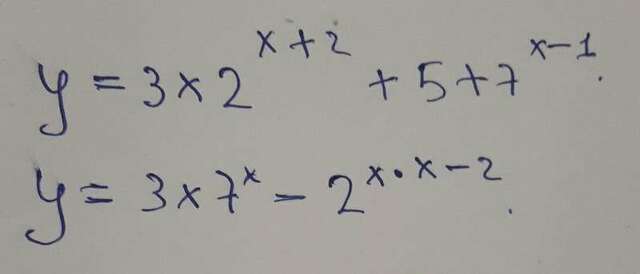 y = 3 × 2^{x+2} + 5 + 7^{x-1}.
y = 3 × 7^{x} - 2^{x·x-2}.